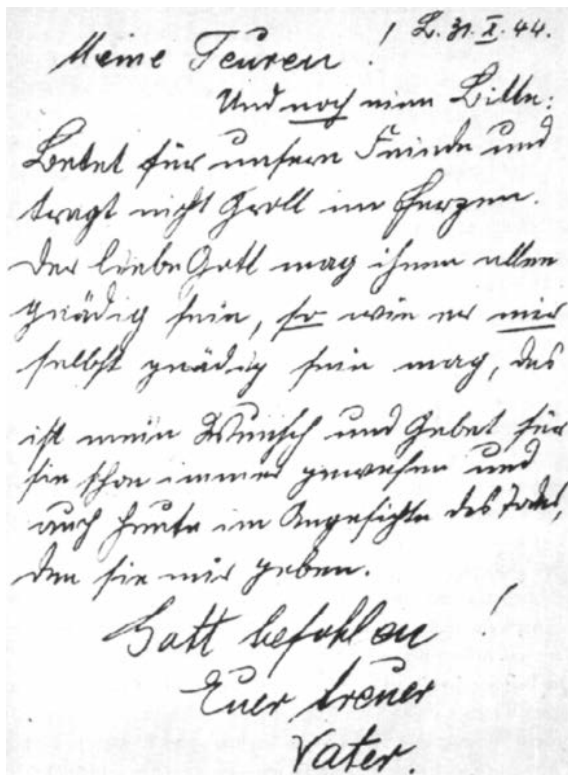 L. 31. X. 44.
Meine Teuren!
Und noch eine Bitte:
Betet für unsere Feinde und
tragt nicht Groll im Herzen.
Der liebe Gott mag ihnen allen
gnädig sein, so wie er mir
selbst gnädig sein mag, das
ist mein Wunsch und Gebet für
sie schon immer gewesen und
auch heute im Angesichte des Todes,
den sie mir geben.
Gott befohlen!
Euer treuer
Vater.